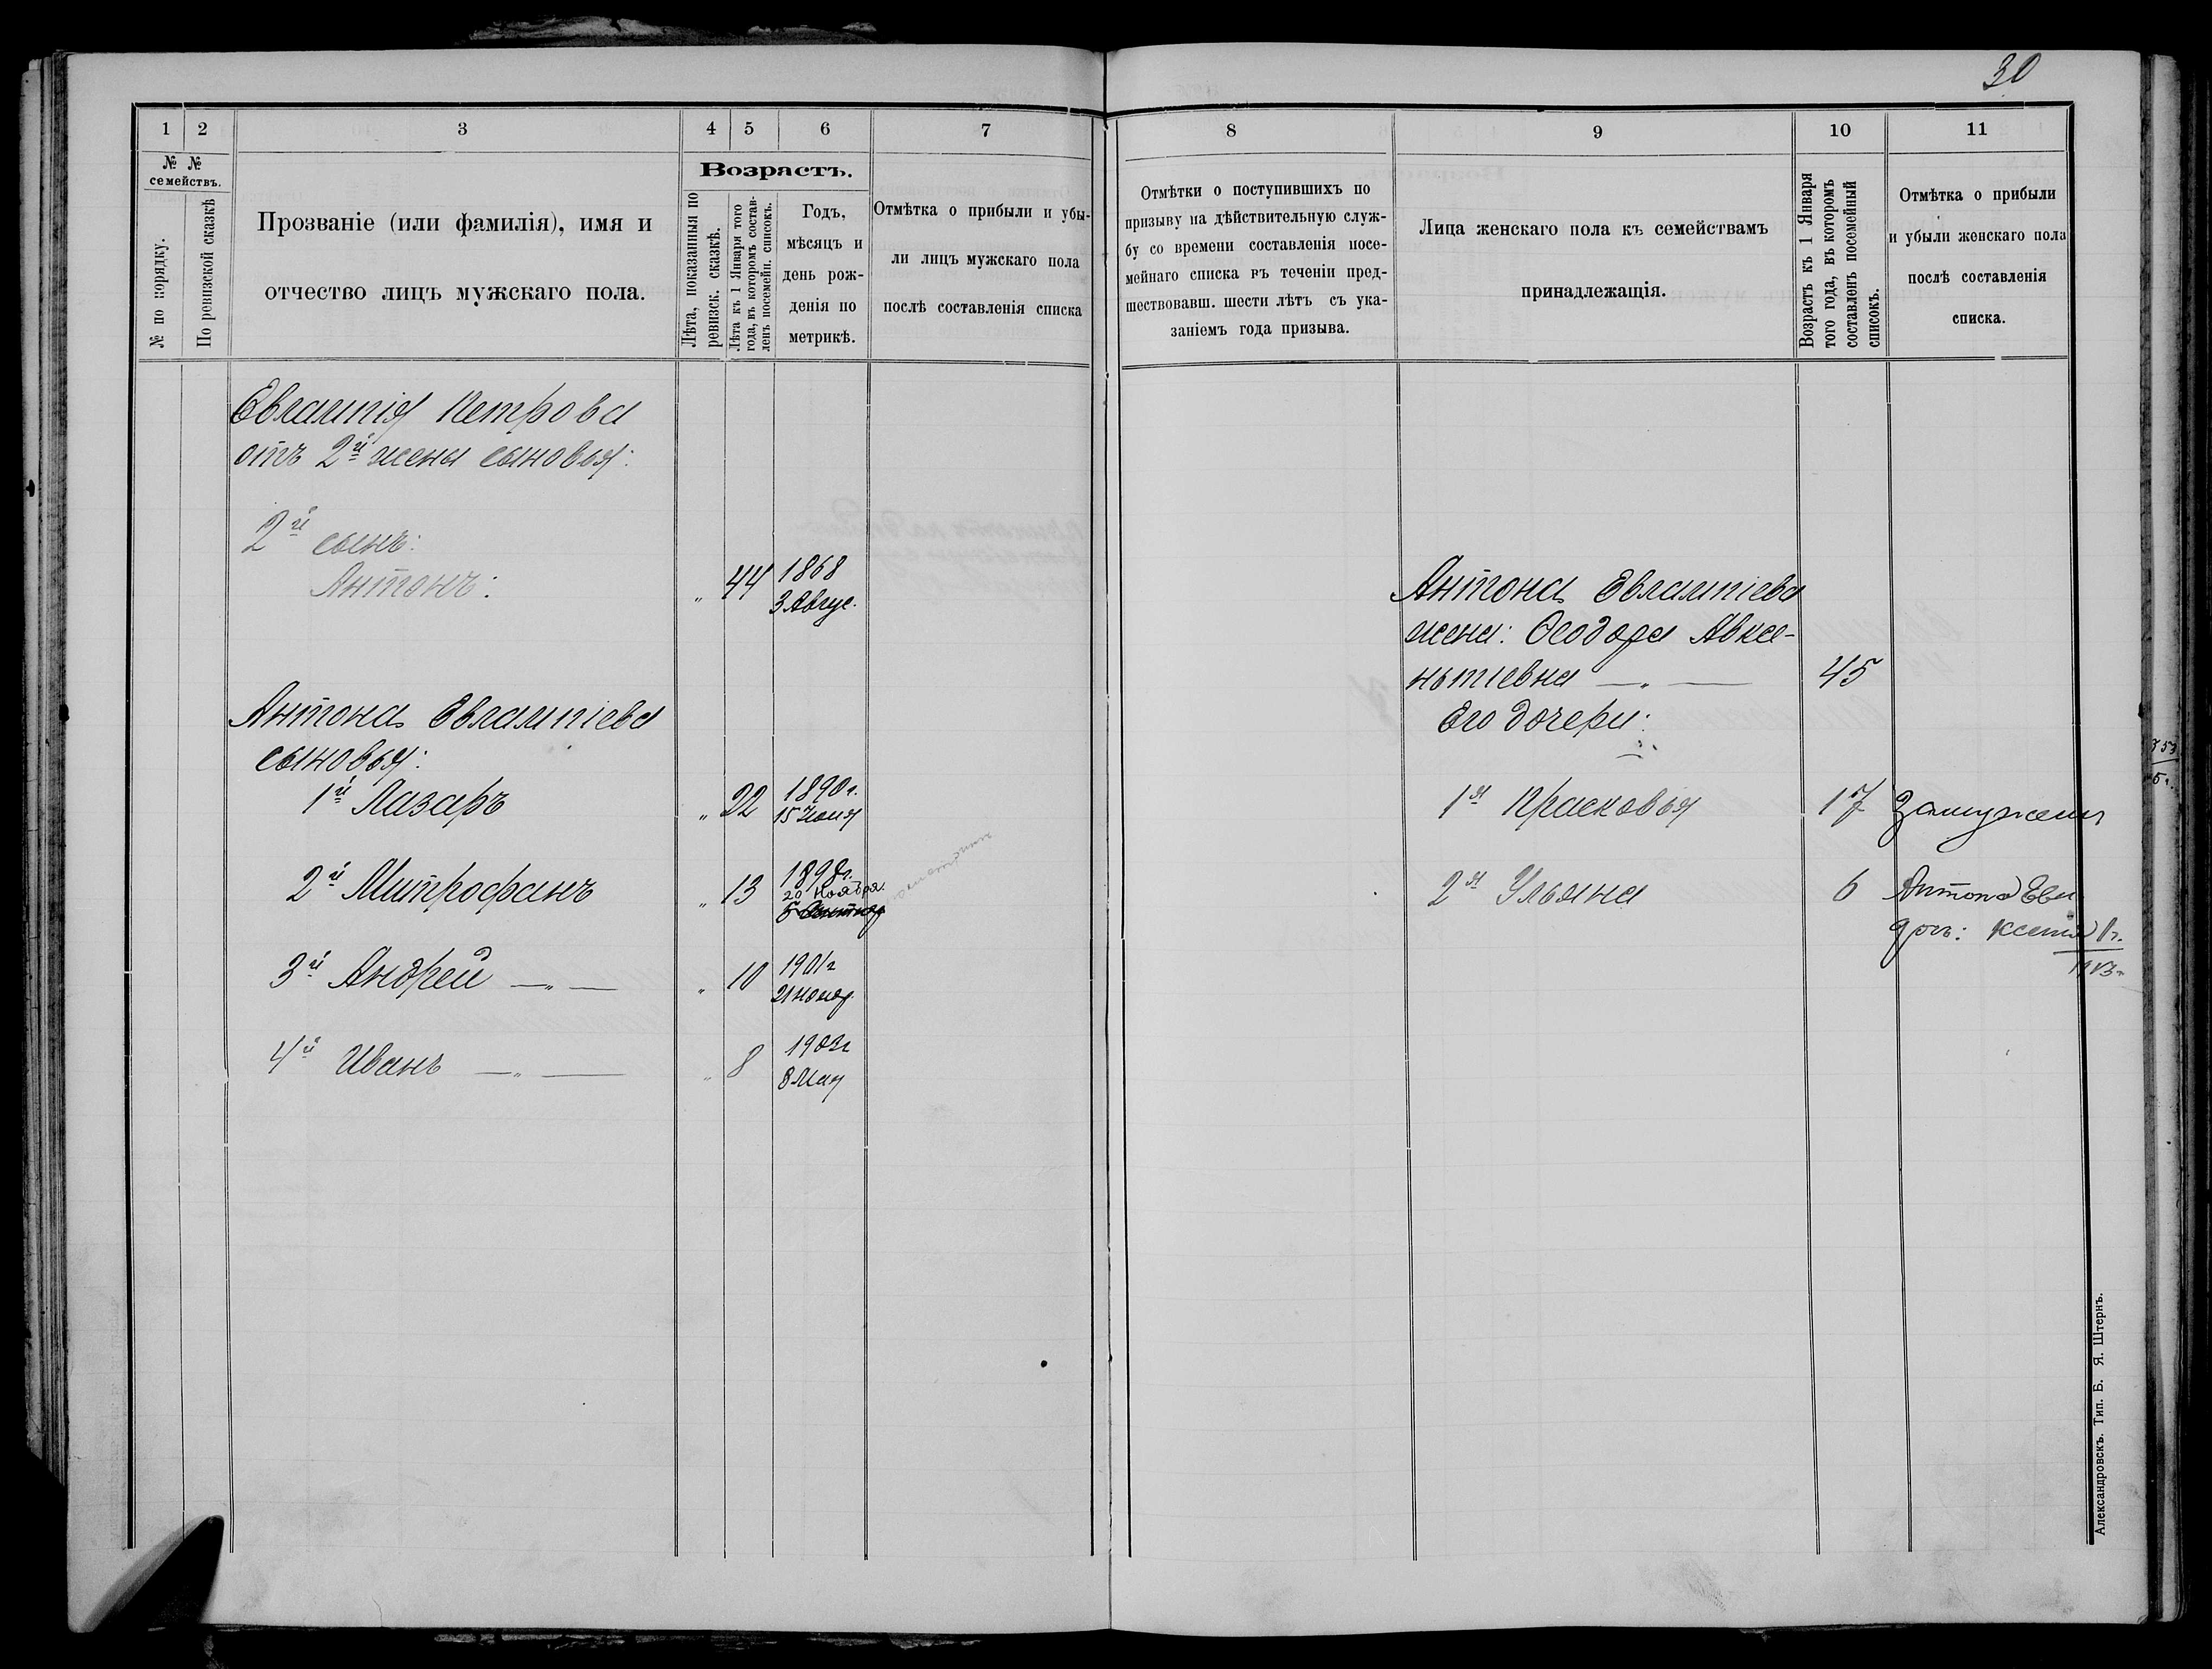 30
1 2 3 4 5 6 7
№ №
семействъ.
№ по порядку.
По ревизской сказкѣ
Прозваніе (или фамилія), имя и
отчество лицъ мужскаго пола.
Возрастъ.
Лѣта, показанныя по
ревизск. сказкѣ.
Лѣта къ 1 Января того
года, въ которомъ состав-
ленъ посемейн. списокъ.
Годъ,
мѣсяцъ и
день рож-
денія по
метрикѣ.
Отмѣтка о прибыли и убы-
ли лицъ мужскаго пола
послѣ составленія списка
Евлампія Петрова
отъ 2й жены сыновья:
2й сынъ:
Антонъ: " 44 1868
3 Авгус.
Антона Евлампіева
сыновья:
1й Лазарь " 22 1890 г.
15 Іюня
2й Митрофанъ " 13 1898 г.
20 Ноября.
по метрикѣ
3й Андрей —"— " 10 1901 г
21 Нояб.
4й Иванъ —"— " 8 1903 г
8 Мая
8 9 10 11
Отмѣтки о поступившихъ по
призыву на дѣйствительную служ-
бу со времени составленія посе-
мейнаго списка въ теченіи пред-
шествовавш. шести лѣтъ съ ука-
заніемъ года призыва.
Лица женскаго пола къ семействамъ
принадлежащія.
Возрастъ къ 1 Января
того года, въ которомъ
составленъ посемейный
списокъ.
Отмѣтка о прибыли
и убыли женскаго пола
послѣ составленія
списка.
Антона Евлампіева
жена: Ѳеодора Авксе-
нтіевна —"— 45
Его дочери:
1я Прасковья 17 Замужемъ
2я Ульяна 6 Антона Евл
дочь: Ксенія 1 г.
1913 г.
Александровскъ. Тип. Б. Я. Штернъ.